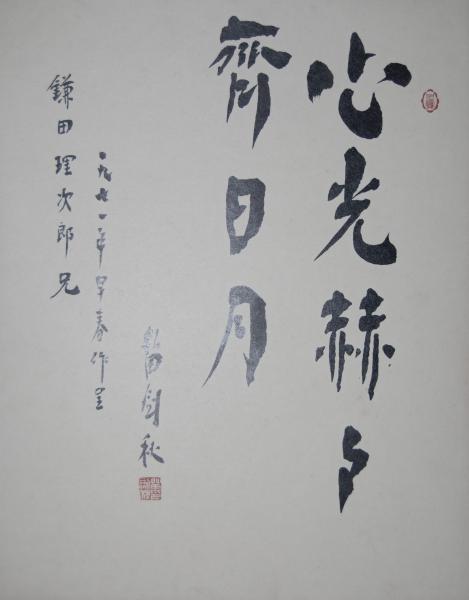 心光赫々
齊日月
田剑秋
一九九一年早春作呈
鎌田理次郎兄